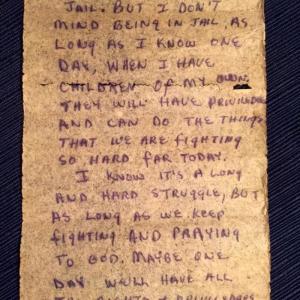 JAIL. BUT I DON'T
MIND BEING IN JAIL, AS
LONG AS I KNOW ONE
DAY, WHEN I HAVE
CHILDREN OF MY OWN.
THEY WILL HAVE PRIVILEDGES
AND CAN DO THE THINGS
THAT WE ARE FIGHTING
SO HARD FAR TODAY.
I KNOW IT'S A LONG
AND HARD STRUGGLE, BUT
AS LONG AS WE KEEP
FIGHTING AND PRAYING
TO GOD. MAYBE ONE
DAY WE'LL HAVE ALL